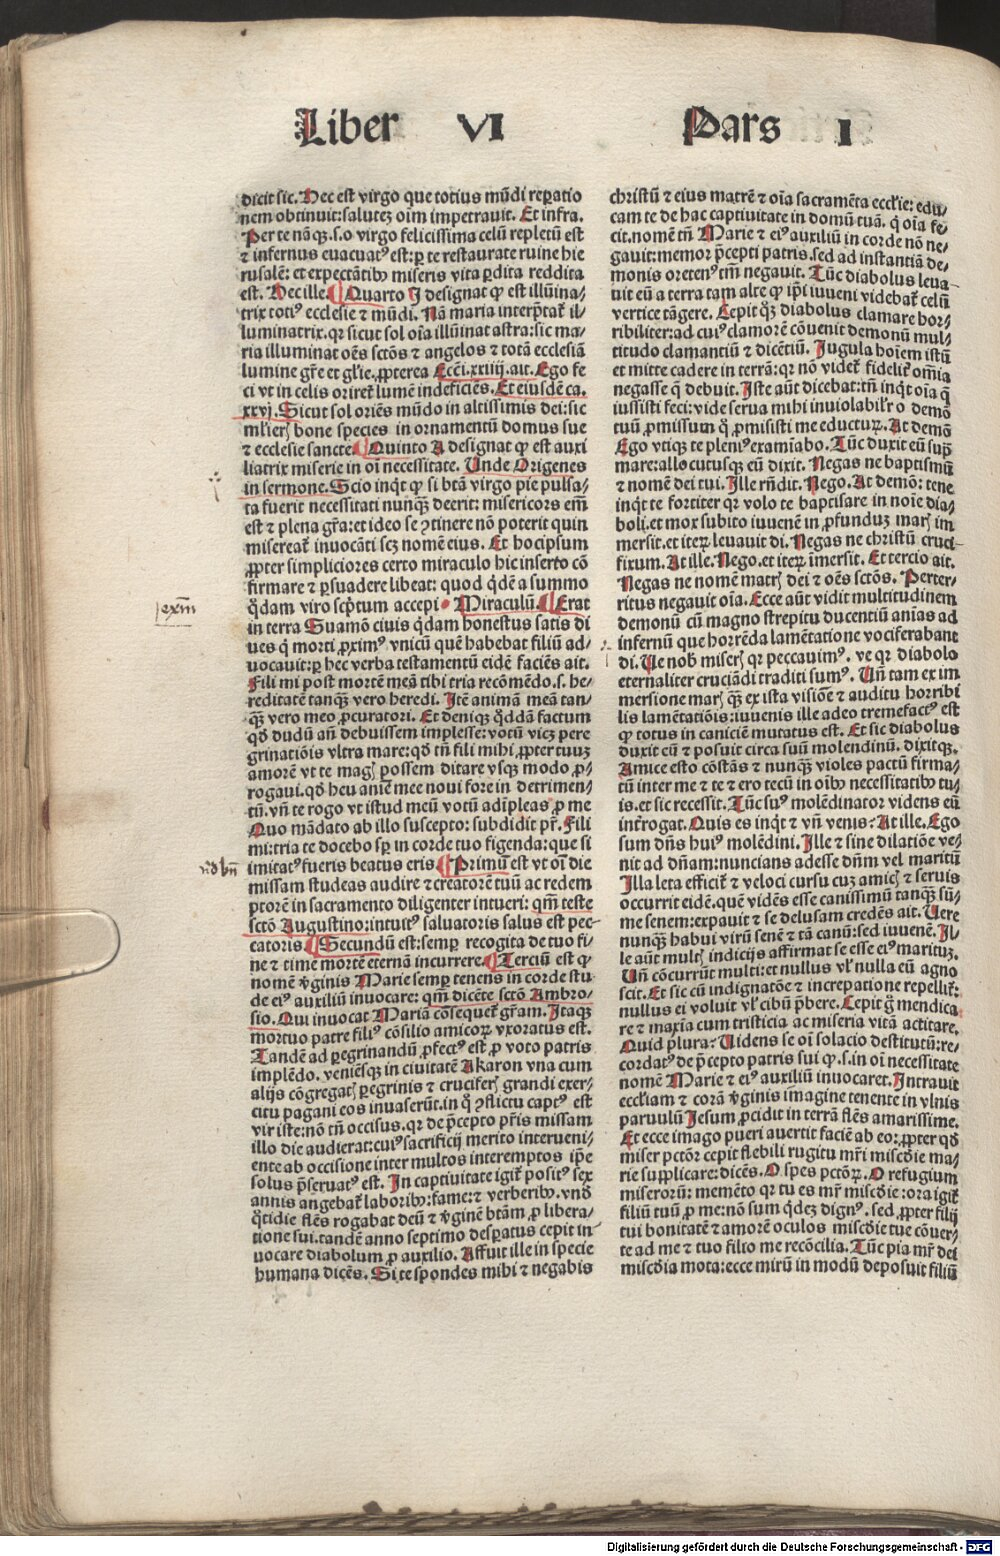 Liber VI Pars I
dicit sic. Hec est virgo que totius mũdi reꝑatio
nem obtinuit: salutez oim̃ impetrauit. Et infra.
Per te nãqꝫ.s.o virgo felicissima celũ repletũ est
⁊ infernus euacuatꝰ est: ꝑ te restaurate ruine hie
rusalẽ: et expectãtibꝰ miseris vita ꝑdita reddita
est. Hec ille. ¶ Quarto I designat ꝙ est illũina⸗
trix totiꝰ ecclesie ⁊ mũdi. Nã maria interp̃tat̃ il⸗
luminatrix. qꝛ sicut sol oĩa illũinat astra: sic ma⸗
ria illuminat oẽs sc̃tõs ⁊ angelos ⁊ totã ecclesiã
lumine gr̃e et gl̃ie. ꝓpterea Ecc̃i.xxiiij. ait. Ego fe
ci vt in celis orireĩ lumẽ indeficiẽs. Et eiusdẽ ca.
xxvj. Sicut sol oriẽs mũdo in altissimis dei: sic
ml̃ieꝝ bone species in ornamentũ domus sue
⁊ ecclesie sancte. ¶ Quinto A designat ꝙ est auxi
liatrix miserie in oĩ necessitate. Unde Origenes
in sermone. Scio inq̃t ꝙ si btã virgo pie pulsa⸗
ta fuerit necessitati nunqꝫ̃ deerit: misericors em̃
est ⁊ plena gr̃a: et ideo se ꝯtinere nõ poterit quin
misereat̃ inuocãti scꝫ nomẽ eius. Et hocipsum
ꝓpter simpliciores certo miraculo hic inserto cõ
firmare ⁊ ꝑsuadere libeat: quod q̃dẽ a summo
q̃dam viro scp̃tum accepi. Miraculũ. ¶ Erat
in terra Suamõ ciuis q̃dam honestus satis di
ues q̃ morti ꝓximꝰ vnicũ quẽ habebat filiũ ad⸗
uocauit: ꝑ hec verba testamentũ eidẽ faciẽs ait.
Fili mi post mortẽ meã tibi tria recõmẽdo.s. he⸗
reditatẽ tanqꝫ̃ vero heredi. Itẽ animã meã tan⸗
qꝫ̃ vero meo ꝓcuratori. Et deniqꝫ q̃ddã factum
qd̃ dudũ añ debuissem implesse: votũ vicꝫ pere
grinatiõis vltra mare: qd̃ tñ fili mihi ꝓpter tuuꝫ
amorẽ vt te magꝭ possem ditare vsqꝫ modo ꝓ⸗
rogaui. qd̃ heu anie mee noui fore in detrimen⸗
tũ. vñ te rogo vt istud meũ votũ adĩpleas ꝓ me
Quo mãdato ab illo suscepto: subdidit pr̃. Fili
mi: tria te docebo sꝑ in corde tuo figenda: que si
imitatꝰ fueris beatus eris ¶ Primũ est vt oĩ die
missam studeas audire ⁊ creatorẽ tuũ ac redem
ptorẽ in sacramento diligenter intueri: qm̃ teste
sc̃tõ Augustino: intuitꝰ saluatoris salus est pec⸗
catoris. ¶ Secundũ est: semꝑ recogita de tuo fi⸗
ne ⁊ time mortẽ eternã incurrere. ¶ Terciũ est ꝙ
nomẽ v̓ginis Marie semꝑ tenens in corde stu⸗
de eiꝰ auxiliũ inuocare: qm̃ dicẽte sc̃tõ Ambro⸗
sio. Qui inuocat Mariã cõsequet̃ gr̃am. Itaqꝫ
mortuo patre filiꝰ cõsilio amicoꝝ vxoratus est.
Tandẽ ad ꝑegrinandũ ꝓfectꝰ est ꝓ voto patris
implẽdo. veniẽsqꝫ in ciuitatẽ Akaron vna cum
alijs cõgregatꝭ ꝑegrinis ⁊ cruciferꝭ grandi exer⸗
citu pagani eos inuaserũt. in q̃ ꝯflictu captꝰ est
vir iste: nõ tñ occisus. qꝛ de p̃cepto pr̃is missam
illo die audierat: cuiꝰ sacrificij merito interueni⸗
ente ab occisione inter multos interemptos ip̃e
solus p̃seruatꝰ est. In captiuitate igit̃ positꝰ sex
annis angebat̃ laboribꝰ: fame: ⁊ verberibꝰ. vnd̃
q̃tidie flẽs rogabat deũ ⁊ v̓ginẽ btãm ꝓ libera⸗
tione sui. tandẽ anno septimo desꝑatus cepit in⸗
uocare diabolum ꝓ auxilio. Affuit ille in specie
humana dicẽs. Si te spondes mihi ⁊ negabis
christũ ⁊ eius matrẽ ⁊ oĩa sacramẽta eccl̃ie: edu⸗
cam te de hac captiuitate in domũ tuã. q̃ oĩa fe⸗
cit. nomẽ tñ Marie ⁊ eiꝰ auxiliũ in corde nõ ne⸗
gauit: memor p̃cepti patris. sed ad instantiã de⸗
monis oretenꝰ tm̃ negauit. Tũc diabolus leua⸗
uit eũ a terra tam alte ꝙ ip̃i iuueni videbat̃ celũ
vertice tãgere. Cepit qꝫ̃ diabolus clamare hor⸗
ribiliter: ad cuiꝰ clamorẽ cõuenit demonũ mul⸗
titudo clamantiũ ⁊ dicẽtiũ. Iugula hoĩem istũ
et mitte cadere in terrã: qꝛ nõ videt̃ fidelit̃ om̃ia
negasse q̃ debuit. Iste aũt dicebat: tñ inq̃t oĩa q̃
iussisti feci: vide serua mihi inuiolabil̃r o demõ
tuũ ꝓmissum q̃ ꝓmisisti me eductuꝝ. At demõ
Ego vtiqꝫ te pleniꝰ examĩabo. Tũc duxit eũ suꝑ
mare: allocutusqꝫ eũ dixit. Negas ne baptismũ
⁊ nomẽ dei tui. Ille rñdit. Nego. At demõ: tene
inq̃t te fortiter qꝛ volo te baptisare in noĩe dia⸗
boli. et mox subito iuuenẽ in ꝓfunduꝫ marꝭ im
mersit. et iteꝝ leuauit di. Negas ne christũ cruci⸗
fixum. At ille. Nego. et iteꝝ ĩmersit. Et tercio ait.
Negas ne nomẽ matrꝭ dei ⁊ oẽs sctõs. Perter⸗
ritus negauit oĩa. Ecce aũt vidit multitudinem
demonũ cũ magno strepitu ducentiũ anĩas ad
infernũ que horrẽda lamẽtatione vociferabant̃
di. Ue nob̃ miserꝭ qꝛ peccauimꝰ. ve qꝛ diabolo
eternaliter cruciãdi traditi sumꝰ. Uñ tam ex im
mersione marꝭ qꝫ̃ ex ista visiõe ⁊ auditu horribi
lis lamẽtatiõis: iuuenis ille adeo tremefactꝰ est
ꝙ totus in caniciẽ mutatus est. Et sic diabolus
duxit eũ ⁊ posuit circa suũ molendinũ. dixitqꝫ.
Amice esto cõstãs ⁊ nunqꝫ̃ violes pactũ firma⸗
tũ inter me ⁊ te ⁊ ero tecũ in oĩbꝰ necessitatibꝰ tu⸗
is. et sic recessit. Tũc suꝰ molẽdinator videns eũ
int̃rogat. Quis es inq̃t ⁊ vñ venis? At ille. Ego
sum dñs huiꝰ molẽdini. Ille ⁊ sine dilatiõe ve⸗
nit ad dñam: nuncians adesse dñm vel maritũ
Illa leta efficit̃ ⁊ veloci cursu cuꝫ amicꝭ ⁊ seruis
occurrit eidẽ. quẽ vidẽs esse canissimũ tanqꝫ̃ sũ⸗
me senem: expauit ⁊ se delusam credẽs ait. Uere
nunqꝫ̃ habui virũ senẽ ⁊ tã canũ: sed iuuenẽ. Il⸗
le aũt multꝭ indicijs affirmat se esse eiꝰ maritũ.
Uñ cõcurrũt multi: et nullus vl̃ nulla eũ agno
scit. Et sic cũ indignatõe ⁊ increpatione repellit̃:
nullus ei voluit vl̃ cibũ p̃bere. Cepit g̃ mendica
re ⁊ maxĩa cum tristicia ac miseria vitã actitare.
Quid plura? Uidens se oĩ solacio destitutũ: re⸗
cordatꝰ de p̃cepto patris sui ꝙ.s. in oĩ necessitate
nomẽ Marie ⁊ eiꝰ auxiliũ inuocaret. Intrauit
eccl̃iam ⁊ corã v̓ginis ĩmagine tenente in vlnis
paruulũ Iesum ꝓcidit in terrã flẽs amarissime.
Et ecce imago pueri auertit faciẽ ab eo: ꝓpter qd̃
miser pctõr cepit flebili rugitu mr̃i miscd̃ie ma⸗
rie supplicare: dicẽs. O spes pctõꝝ. O refugium
miseroꝝ: memẽto qꝛ tu es mr̃ miscd̃ie: ora igit̃
filiũ tuũ ꝓ me: nõ sum q̃deꝫ dignꝰ. sed ꝓpter filij
tui bonitatẽ ⁊ amorẽ oculos miscd̃ie tue cõuer⸗
te ad me ⁊ tuo filio me recõcilia. Tũc pia mr̃ dei
miscd̃ia mota: ecce mirũ in modũ deposuit filiũ
exm̃
Digitalisierung gefördert durch die Deutsche Forschungsgemeinschaft - DFG